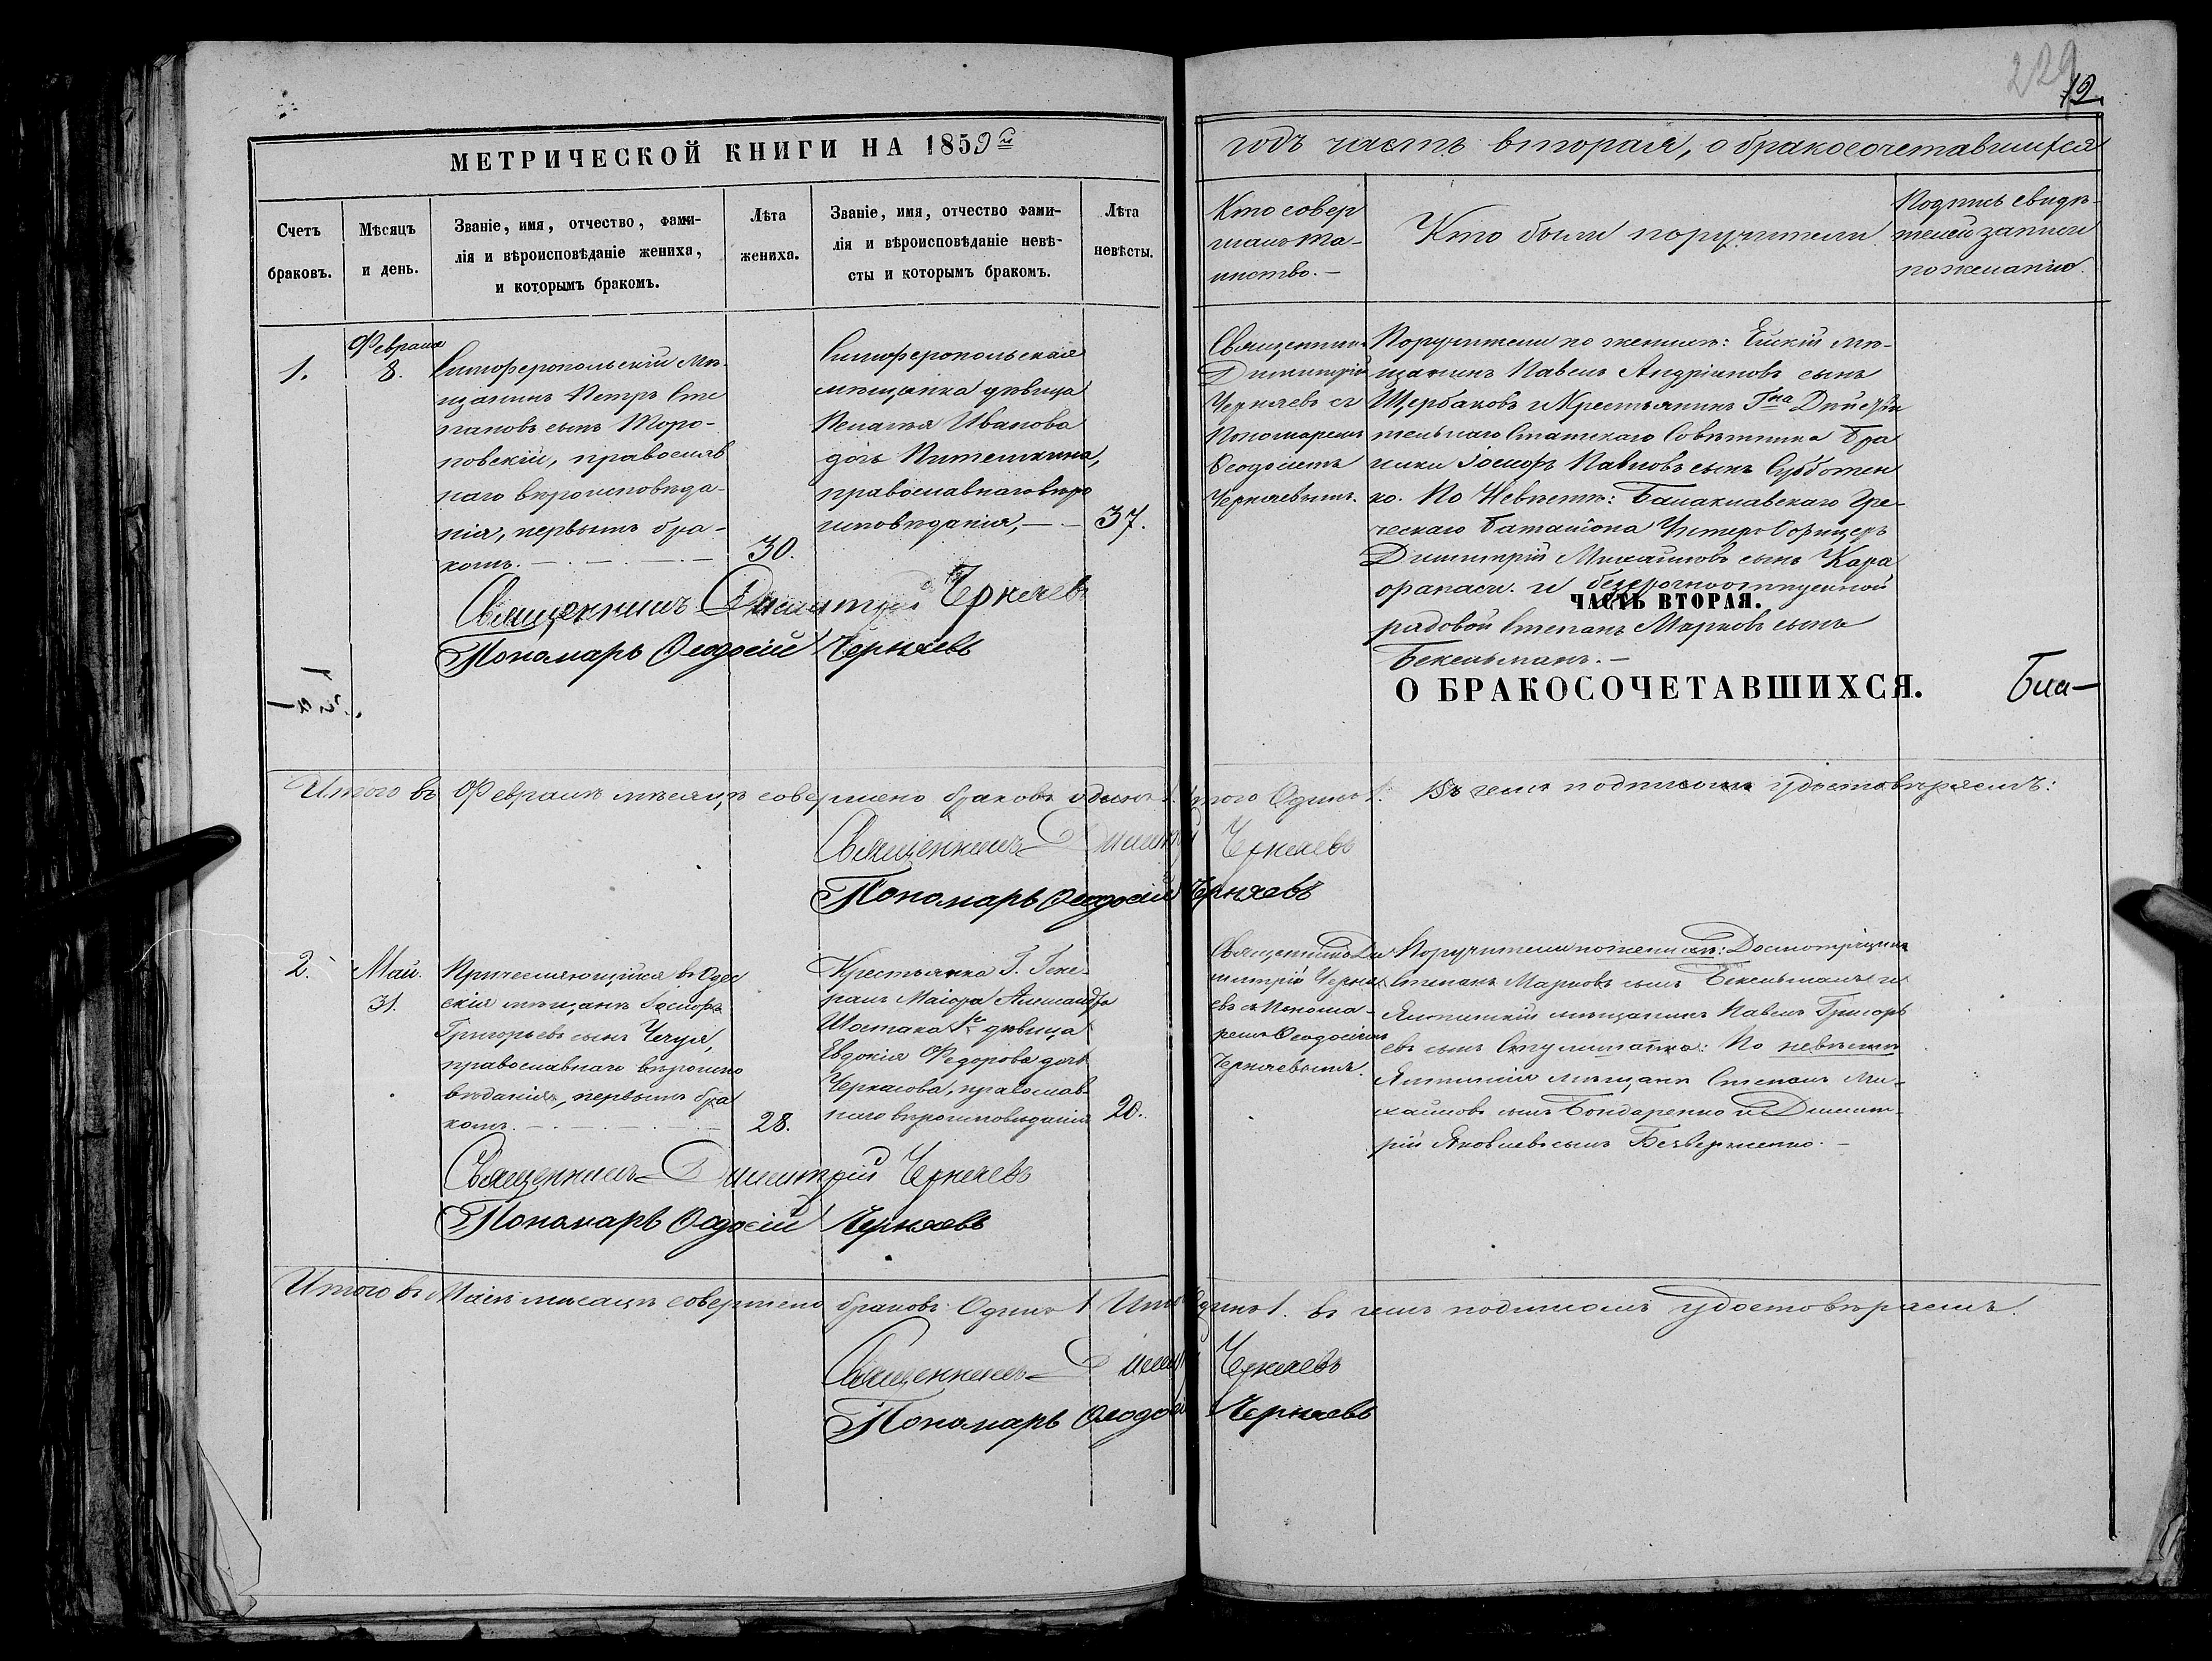 229
19.
МЕТРИЧЕСКОЙ КНИГИ НА 1859й
годъ часть вторая, о бракосочетавшихся
Счетъ
браковъ.
Мѣсяцъ
и день.
Званіе, имя, отчество, фами-
лія и вѣроисповѣданіе жениха,
и которымъ бракомъ.
Лѣта
жениха.
Званіе, имя, отчество фами-
лія и вѣроисповѣданіе невѣ-
сты и которымъ бракомъ.
Лѣта
невѣсты.
Кто совер
шалъ та-
инство.-
Кто были поручители
Подпись свидѣ-
телей записи
по желанію.
1.
Февраля
8.
Симферопольскій мѣ-
щанинъ Петръ Сте
пановъ сынъ Торо-
повскій, православ
наго вѣроисповѣда-
нія, первымъ бра-
комъ.
30.
Симферопольская
мѣщанка дѣвица
Пелагея Иванова
дочь Пителкина,
православнаго вѣро
исповѣданія,
37.
Священникъ
Димитрій
Черняевъ съ
Пономаремъ
Ѳеодосіемъ
Черняевымъ.
Поручители по женихѣ: Ейскій мѣ-
щанинъ Павелъ Андріановъ сынъ
Щербаковъ и Крестьянинъ Гна Дѣйстви
тельнаго Статскаго Совѣтника
Іосифъ Павловъ сынъ Субботен
ко. По Невѣстѣ: Балаклавскаго Гре-
ческаго Баталіона Унтеръ Офицеръ
Димитрій Михайловъ сынъ Кара
фанаси. и безсрочноотпускной
рядовой Степанъ Марковъ сынъ
Бекельманъ.-
ЧАСТЬ ВТОРАЯ.
О БРАКОСОЧЕТАВШИХСЯ.
Священникъ Димитрій Черняевъ
Пономарь Ѳеодосій Черняевъ
Итого въ Февралѣ мѣсяцѣ совершено браковъ одинъ 1. Итого Одинъ 1. Въ чемъ подписомъ удостовѣряемъ:
Священникъ Димитрій Черняевъ
Пономарь Ѳеодосій Черняевъ
2.
Май.
31.
Причисляющійся въ Одес
скіе мѣщане Іосифъ
Григорьевъ сынъ Чечуя,
православнаго вѣроиспо
вѣданія, первымъ бра
комъ.
28.
Крестьянка Г. Гене-
ралъ Маіора Александра
Шостака дѣвица
Евдокія Федорова дочь
Черкасова, православ-
наго вѣроисповѣданія
20.
Священникъ Ди
митрій Черня
евъ съ Понома-
ремъ Ѳеодосіемъ
Черняевымъ.
Поручители по женихѣ: Досмотрщикъ
Степанъ Марковъ сынъ Бекельманъ и
Ялтинскій мѣщанинъ Павелъ Григорь
евъ сынъ По невѣстѣ
Ялтинскіе мѣщане Степанъ Ми-
хайловъ сынъ Бондаренко и Димит-
рій Яковлевъ сынъ
Священникъ Димитрій Черняевъ
Пономарь Ѳеодосій Черняевъ
Итого въ Маѣ мѣсяцѣ совершено браковъ Одинъ 1 Итого Одинъ 1. въ чемъ подписомъ удостовѣряемъ.
Священникъ Димитрій Черняевъ
Пономарь Ѳеодосій Черняевъ